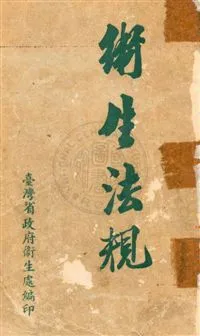 衛生法規
臺灣省政府衛生處編印